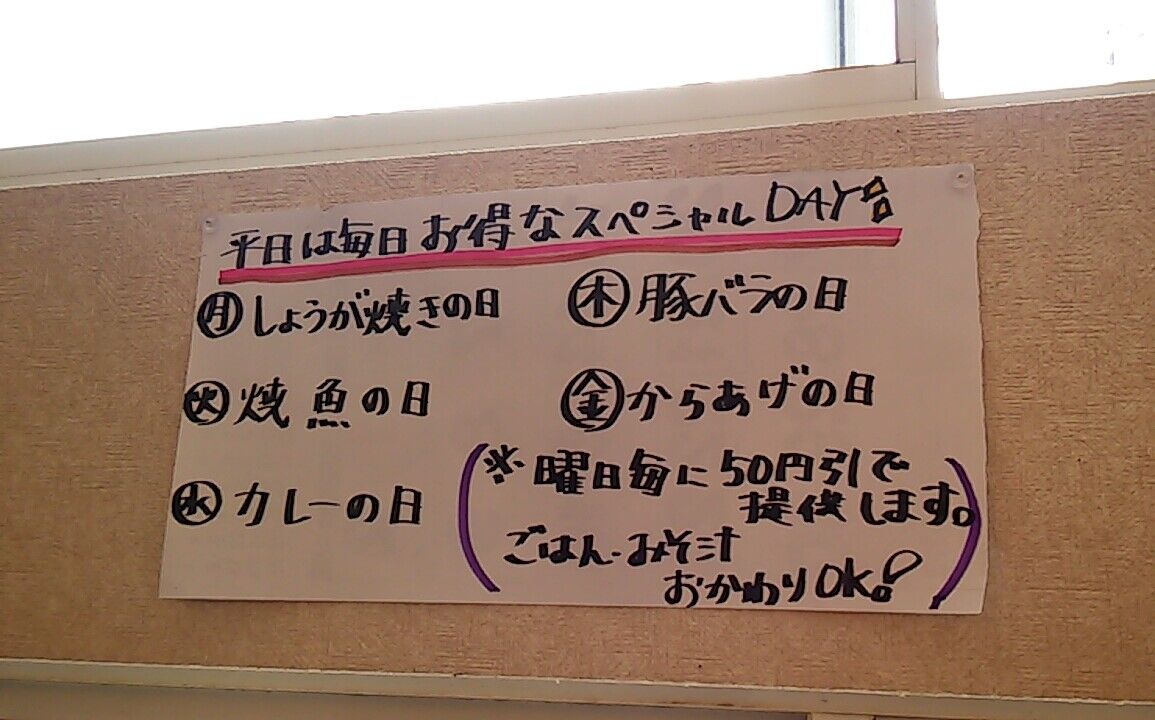 平日は毎日お得なスペシャルDAY
㊊しょうが焼きの日
㊋焼魚の日
㊌カレーの日
㊍豚バラの日
㊎からあげの日
(※曜日毎に50円引で
提供します。
ごはん・みそ汁
おかわりOK!)